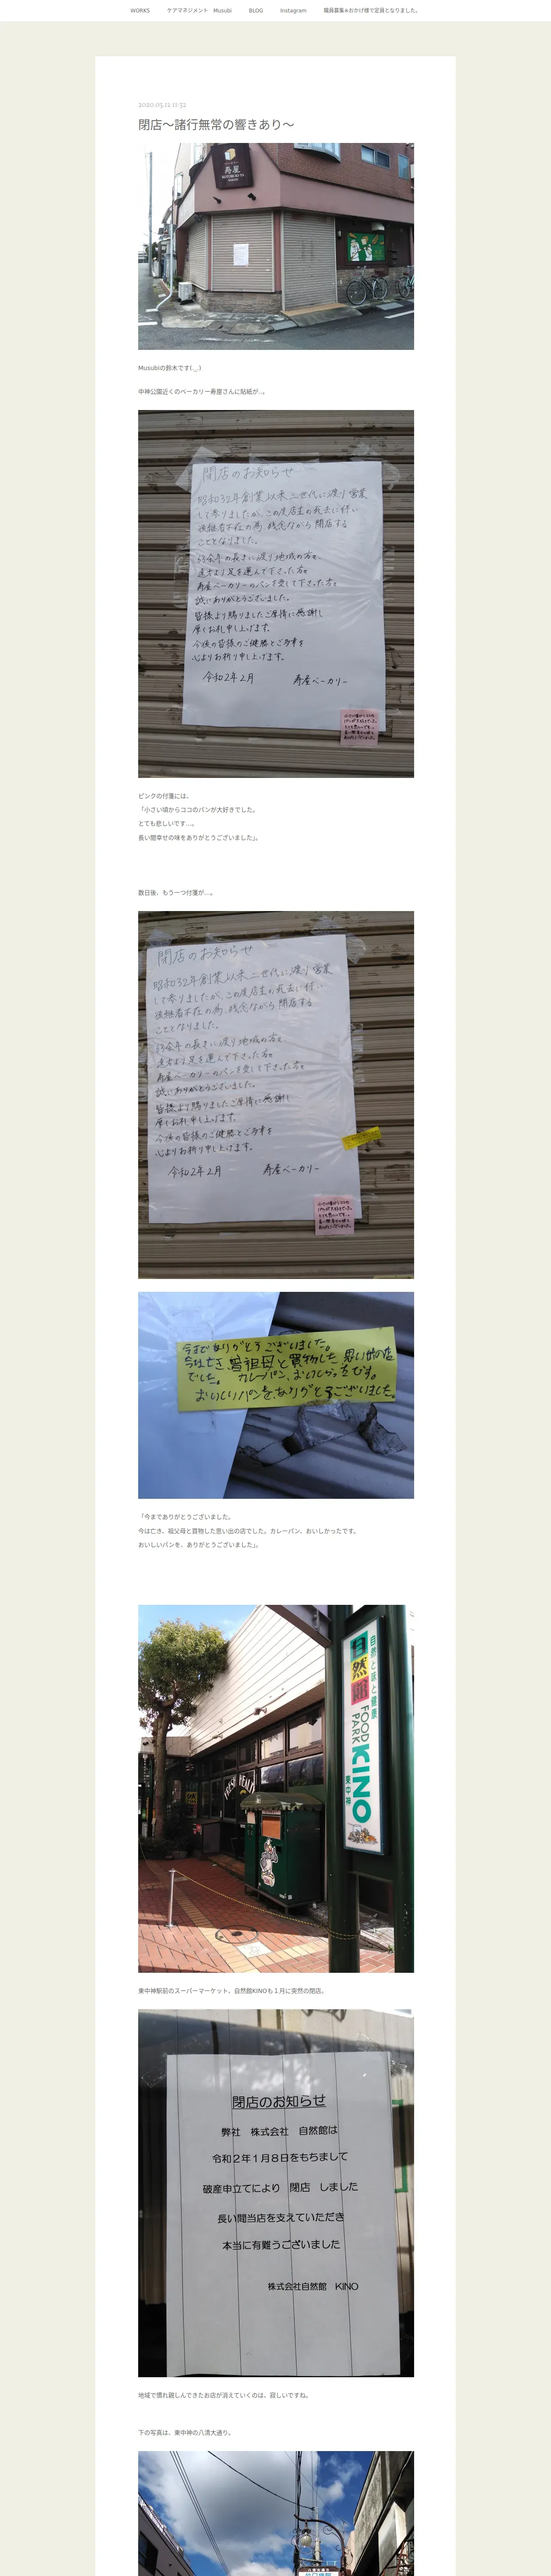 WORKS
ケアマネジメント Musubi
BLOG
Instagram
職員募集※おかげ様で定員となりました。
2020.03.12 11:32
閉店〜諸行無常の響きあり〜
寿屋
Musubiの鈴木です(._.)
中神公園近くのベーカリー寿屋さんに貼紙が..。
閉店のお知らせ
昭和32年創業以来、三世代に渡り営業
して参りましたが、この度店主の死去に伴い
後継者不在の為、残念ながら閉店する
こととなりました。
63余年の長きに渡り地域の方々、
遠方より足を運んで下さった方々
寿屋ベーカリーのパンを愛して下さった方々
誠にありがとうございました。
皆様より賜りましたご厚情に感謝し
厚くお礼申し上げます。
今後の皆様のご健勝とご多幸を
心よりお祈り申し上げます。
令和2年2月 寿屋ベーカリー
ピンクの付箋には、
「小さい頃からココのパンが大好きでした。
とても悲しいです...。
長い間幸せの味をありがとうございました」。
数日後、もう一つ付箋が...。
閉店のお知らせ
昭和32年創業以来、三世代に渡り営業
して参りましたが、この度店主の死去に伴い
後継者不在の為、残念ながら閉店する
こととなりました。
63余年の長きに渡り地域の方々、
遠方より足を運んで下さった方々
寿屋ベーカリーのパンを愛して下さった方々
誠にありがとうございました。
皆様より賜りましたご厚情に感謝し
厚くお礼申し上げます。
今後の皆様のご健勝とご多幸を
心よりお祈り申し上げます。
令和2年2月 寿屋ベーカリー
今までありがとうございました。
今は亡き、祖父母と買物した思い出の店
でした。カレーパン、おいしかったです。
おいしいパンを、ありがとうございました。
「今までありがとうございました。
今は亡き、祖父母と買物した思い出の店でした。カレーパン、おいしかったです。
おいしいパンを、ありがとうございました」。
自然と味と健康
自然館
FOOD PARK KINO
東中神
FRESH HEALTH
東中神駅前のスーパーマーケット、自然館KINOも１月に突然の閉店。
閉店のお知らせ
弊社 株式会社 自然館は
令和２年１月８日をもちまして
破産申立てにより 閉店 しました
長い間当店を支えていただき
本当に有難うございました
株式会社自然館 KINO
地域で慣れ親しんできたお店が消えていくのは、寂しいですね。
下の写真は、東中神の八清大通り。